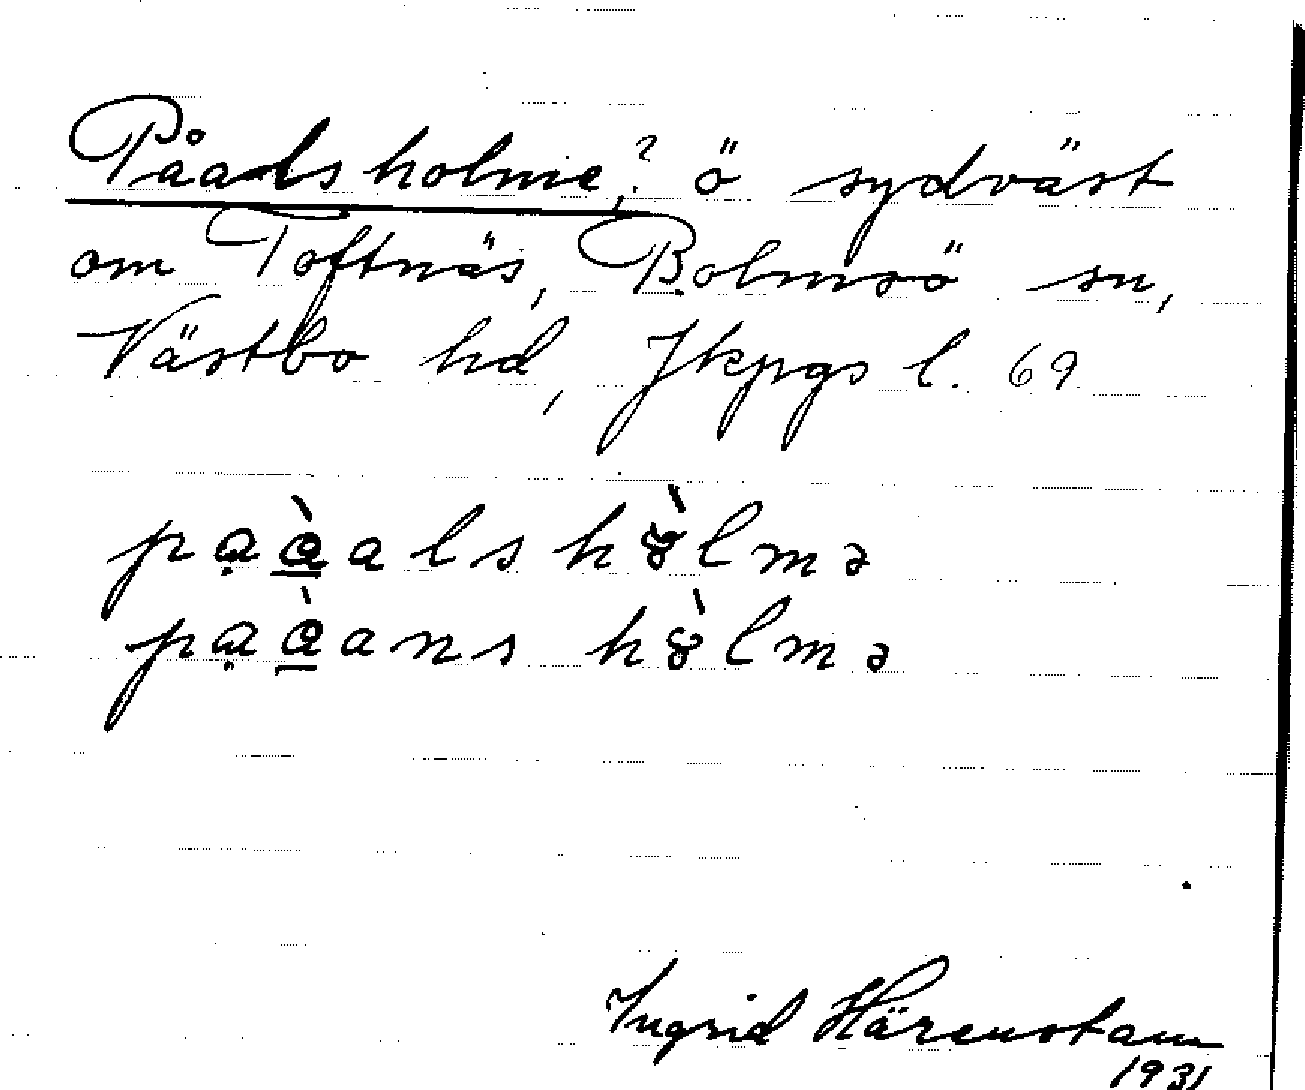 Påalsholme,? ö sydväst
om Toftnäs, Bolmsö sn,
Västbo hd, Jkpgs l. 69
pa̤å̱̀alshȣ̀lmə
pa̤å̱̀anshȣ̀lmə
Ingrid Härenstam
1931